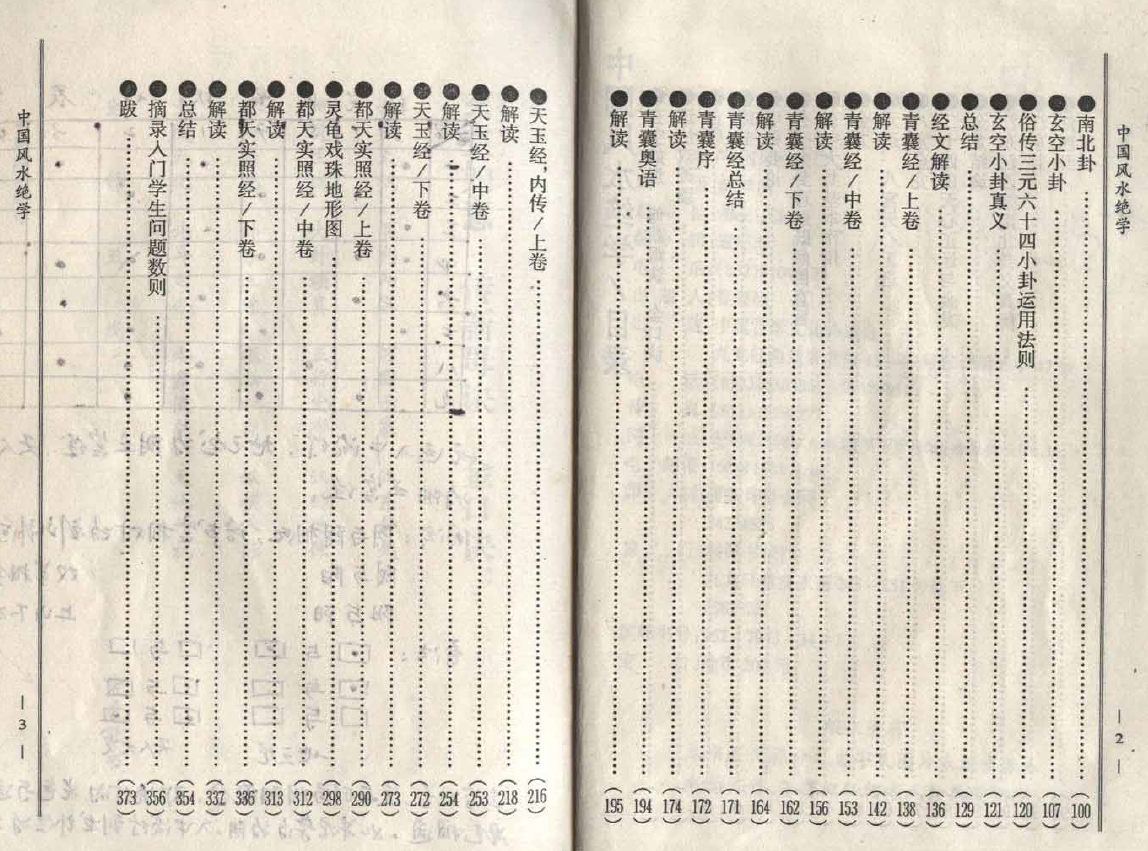 中国风水绝学
●南北卦(100)
●玄空小卦(107)
●俗传三元六十四小卦运用法则(120)
●玄空小卦真义(121)
●总结(129)
●经文解读(136)
●青囊经/上卷(138)
●解读(142)
●青囊经/中卷(153)
●解读(156)
●青囊经/下卷(162)
●解读(164)
●青囊经总结(171)
●青囊序(172)
●解读(174)
●青囊奥语(194)
●解读(195)
—2—
●天玉经,内传/上卷(216)
●解读(218)
●天玉经/中卷(253)
●解读(254)
●天玉经/下卷(272)
●解读(273)
●都天实照经/上卷(290)
●灵龟戏珠地形图(298)
●都天实照经/中卷(312)
●解读(313)
●都天实照经/下卷(336)
●解读(337)
●总结(354)
●摘录入门学生问题数则(356)
●跋(373)
中国风水绝学
—3—